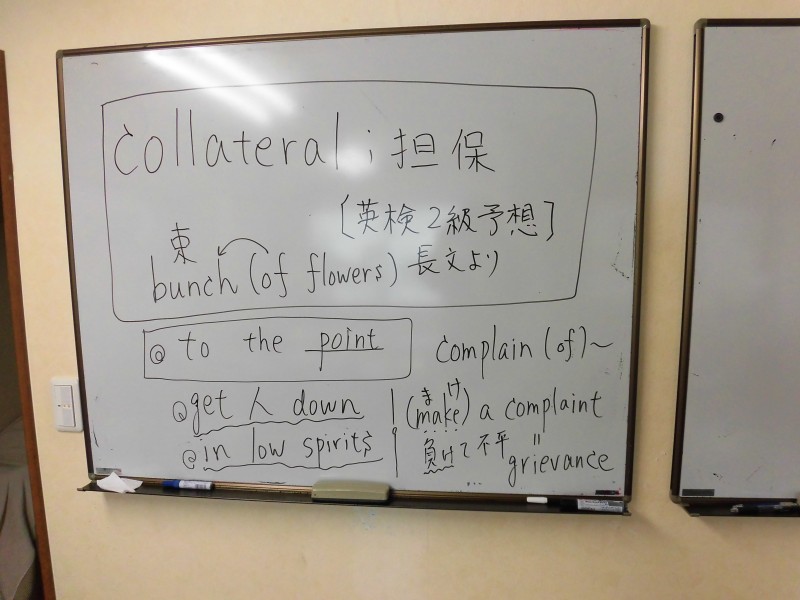 collateral ; 担保
[英検2級予想]
束
bunch (of flowers) 長文より
@ to the point
complain (of)~
@get 人 down
まけ
(make) a complaint
@in low spirits
負けて不平
=
grievance